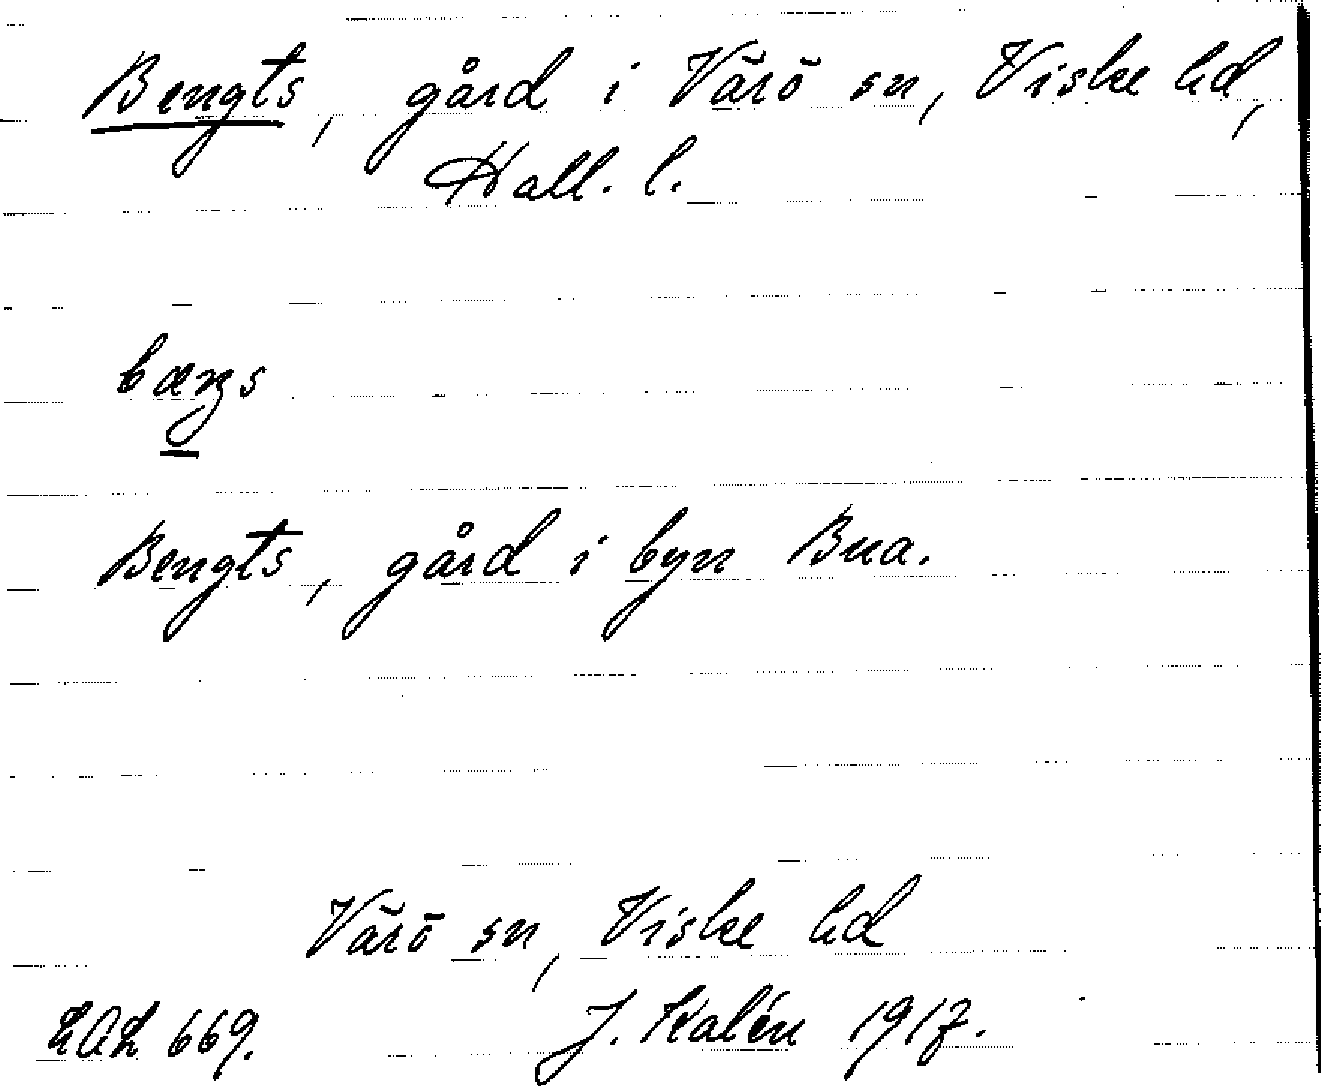 Bengts, gård i Värö sn, Viske hd,
Hall. l.
bæŋs
Bengts, gård i byn Bua.
Värö sn, Viske hd
LAL 669. J. Kalén 1917.